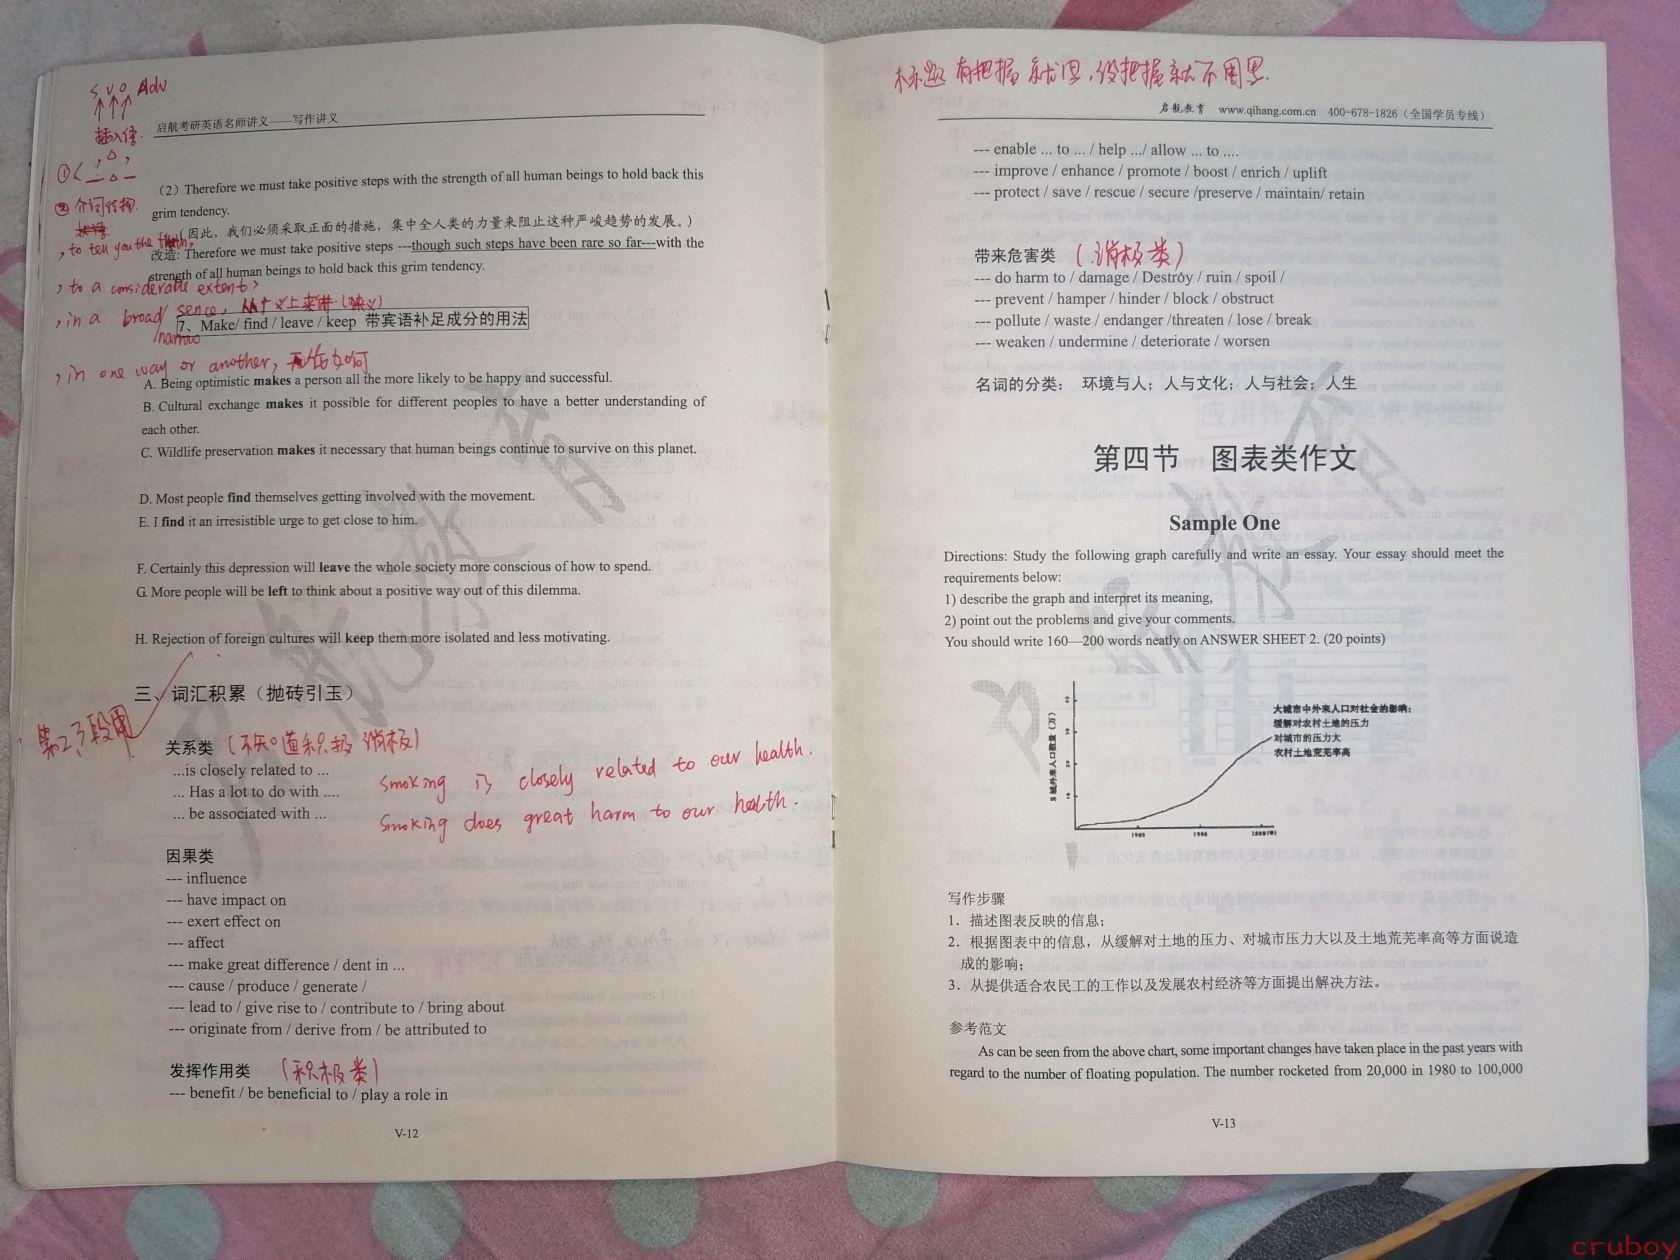 S V O Adv
插入语.
启航考研英语名师讲义——写作讲义
①
② 介词结构.
（2）Therefore we must take positive steps with the strength of all human beings to hold back this
grim tendency.
（因此，我们必须采取正面的措施，集中全人类的力量来阻止这种严峻趋势的发展。）
, to tell you the truth,
改造: Therefore we must take positive steps ---though such steps have been rare so far---with the
strength of all human beings to hold back this grim tendency.
, to a considerable extent,
, in a broad sence, 从广义上来讲.(狭义)
narrow
7、Make/ find / leave / keep 带宾语补足成分的用法
, in one way or another, 无论如何
A. Being optimistic makes a person all the more likely to be happy and successful.
B. Cultural exchange makes it possible for different peoples to have a better understanding of
each other.
C. Wildlife preservation makes it necessary that human beings continue to survive on this planet.
D. Most people find themselves getting involved with the movement.
E. I find it an irresistible urge to get close to him.
F. Certainly this depression will leave the whole society more conscious of how to spend.
G. More people will be left to think about a positive way out of this dilemma.
H. Rejection of foreign cultures will keep them more isolated and less motivating.
三、词汇积累（抛砖引玉）
第2、3段用
关系类 (不知道积极 消极)
...is closely related to ...
... Has a lot to do with ....
... be associated with ...
smoking is closely related to our health.
smoking does great harm to our health.
因果类
--- influence
--- have impact on
--- exert effect on
--- affect
--- make great difference / dent in ...
--- cause / produce / generate /
--- lead to / give rise to / contribute to / bring about
--- originate from / derive from / be attributed to
发挥作用类 (积极类)
--- benefit / be beneficial to / play a role in
V-12
标题 有把握就用,没把握就不用写.
启航教育 www.qihang.com.cn 400-678-1826（全国学员专线）
--- enable ... to ... / help .../ allow ... to ....
--- improve / enhance / promote / boost / enrich / uplift
--- protect / save / rescue / secure /preserve / maintain/ retain
带来危害类 (消极类)
--- do harm to / damage / Destroy / ruin / spoil /
--- prevent / hamper / hinder / block / obstruct
--- pollute / waste / endanger /threaten / lose / break
--- weaken / undermine / deteriorate / worsen
名词的分类： 环境与人；人与文化；人与社会；人生
第四节 图表类作文
Sample One
Directions: Study the following graph carefully and write an essay. Your essay should meet the
requirements below:
1) describe the graph and interpret its meaning,
2) point out the problems and give your comments.
You should write 160—200 words neatly on ANSWER SHEET 2. (20 points)
大城市中外来人口对社会的影响:
缓解对农村土地的压力
对城市的压力大
农村土地荒芜率高
S 城外来人口数量（万）
1980 1990 2000(年)
写作步骤
1．描述图表反映的信息；
2．根据图表中的信息，从缓解对土地的压力、对城市压力大以及土地荒芜率高等方面说造
成的影响；
3．从提供适合农民工的工作以及发展农村经济等方面提出解决方法。
参考范文
As can be seen from the above chart, some important changes have taken place in the past years with
regard to the number of floating population. The number rocketed from 20,000 in 1980 to 100,000
V-13
cruboy